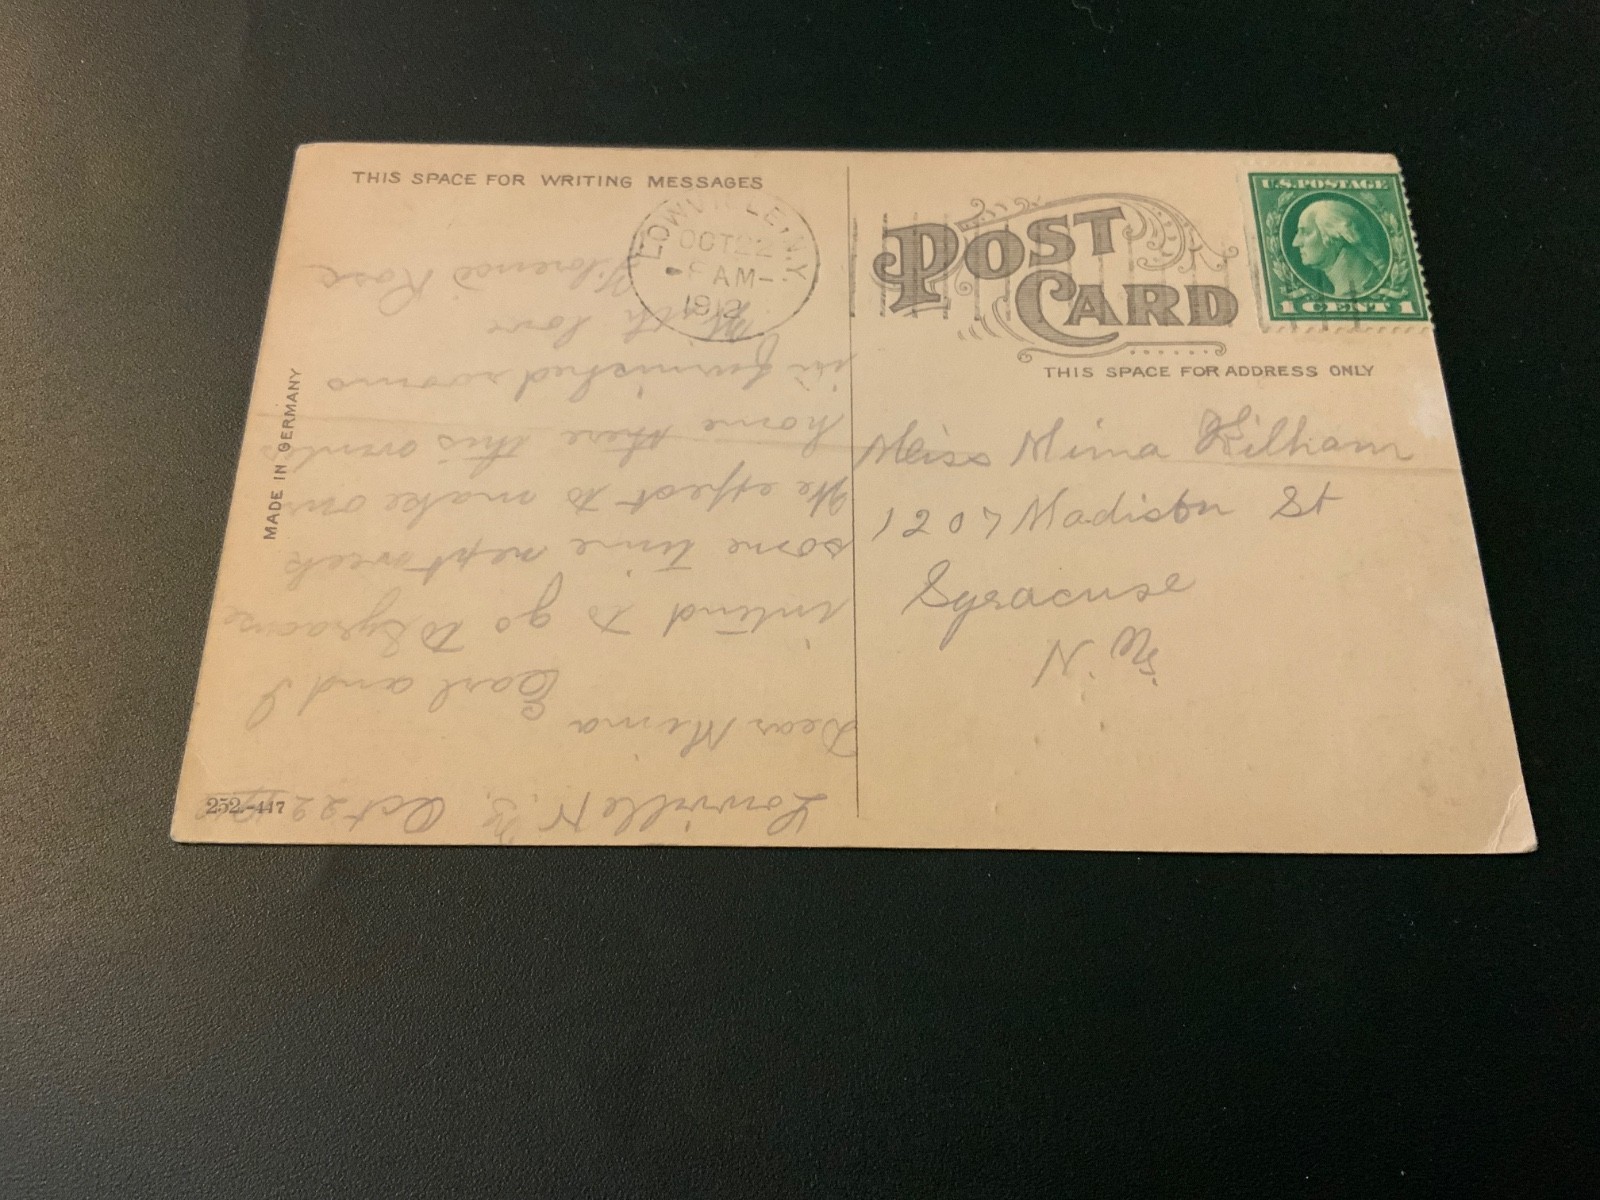 THIS SPACE FOR WRITING MESSAGES
LOWVILLE, N.Y.
OCT 22
AM
1912
POST
CARD
U.S. POSTAGE
1 CENT 1
THIS SPACE FOR ADDRESS ONLY
Miss Mima Kilham
1207 Madison St
Syracuse
N. Y.
MADE IN GERMANY
252.-417
Lowville N. Y. Oct 22
Dear Mima
Earl and I
intend to go to Syracuse
some time next week
We expect to make our
home there this winter
in furnished rooms
With love
Florence Rose